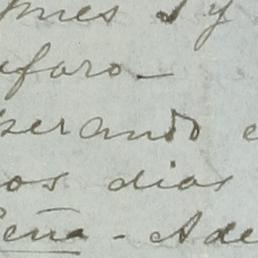 y
faro_
perando e
os dias
eña - Ade